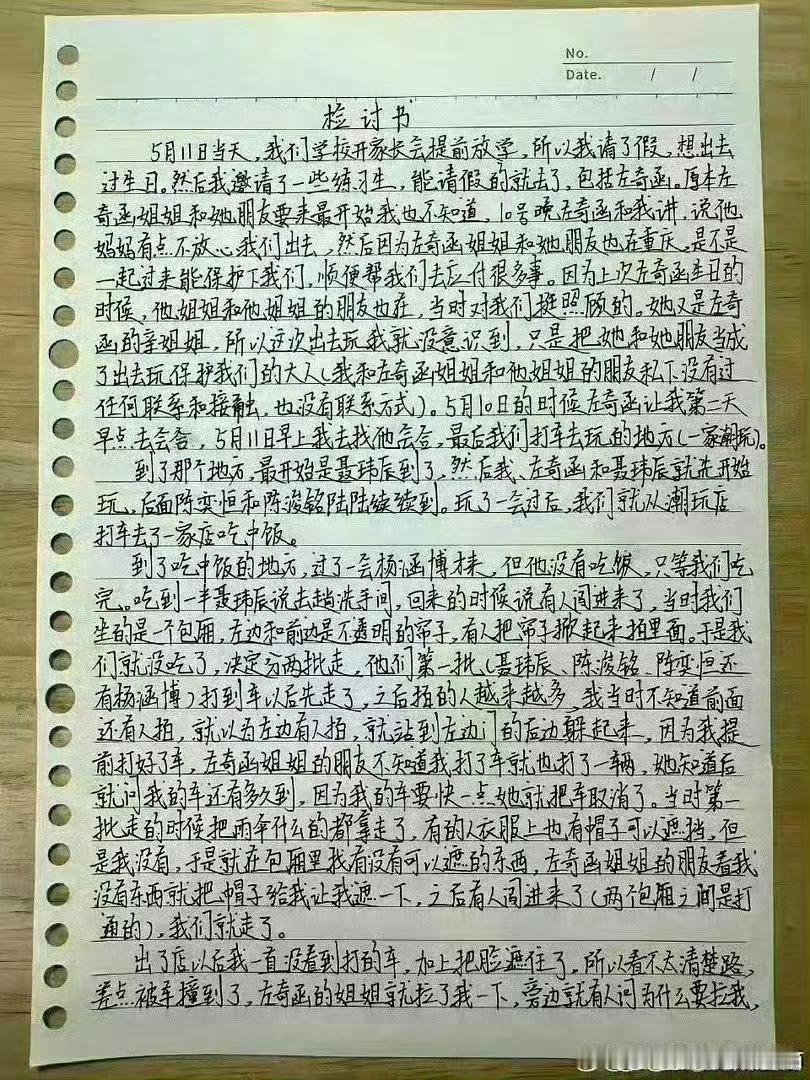 No.
Date. / /
检讨书
5月11日当天，我们学校开家长会提前放学，所以我请了假，想出去
过生日。然后我邀请了一些练习生，能请假的就去了，包括左奇函。原本左
奇函姐姐和她朋友要来最开始我也不知道，10号晚左奇函和我讲，说他
妈妈有点不放心我们出去，然后因为左奇函姐姐和她朋友也在重庆，是不是
一起过来能保护下我们，顺便帮我们去应付很多事。因为上次左奇函生日的
时候，他姐姐和他姐姐的朋友也在，当时对我们挺照顾的。她又是左奇
函的亲姐姐，所以这次出去玩我就没意识到，只是把她和她朋友当成
了出去玩保护我们的大人（我和左奇函姐姐和他姐姐的朋友私下没有过
任何联系和接触，也没有联系方式）。5月10日的时候左奇函让我第二天
早点去会合，5月11日早上我去找他会合，最后我们打车去玩的地方（一家潮玩）。
到了那个地方，最开始是聂玮辰到了，然后我、左奇函和聂玮辰就先开始
玩，后面陈奕恒和陈浚铭陆陆续续到。玩了一会过后，我们就从潮玩店
打车去了一家店吃中饭。
到了吃中饭的地方，过了一会杨涵博来，但他没有吃饭，只等我们吃
完。吃到一半聂玮辰说去趟洗手间，回来的时候说有人闯进来了，当时我们
坐的是一个包厢，左边和前边是不透明的帘子，有人把帘子掀起来拍里面。于是我
们就没吃了，决定分两批走，他们第一批（聂玮辰、陈浚铭、陈奕恒还
有杨涵博）打到车以后先走了，之后拍的人越来越多，我当时不知道前面
还有人拍，就以为左边有人拍，就站到左边门的后边躲起来，因为我提
前打好了车，左奇函姐姐的朋友不知道我打了车就也打了一辆，她知道后
就问我的车还有多久到，因为我的车要快一点她就把车取消了。当时第一
批走的时候把雨伞什么的都拿走了，有的人衣服上也有帽子可以遮挡，但
是我没有，于是就在包厢里找有没有可以遮的东西，左奇函姐姐的朋友看我
没有东西就把帽子给我让我遮一下，之后有人闯进来了（两个包厢之间是打
通的），我们就走了。
出了店以后我一直没看到打的车，加上把脸遮住了，所以看不太清楚路，
差点被车撞到了，左奇函的姐姐就拉了我一下，旁边就有人问为什么要拉我，